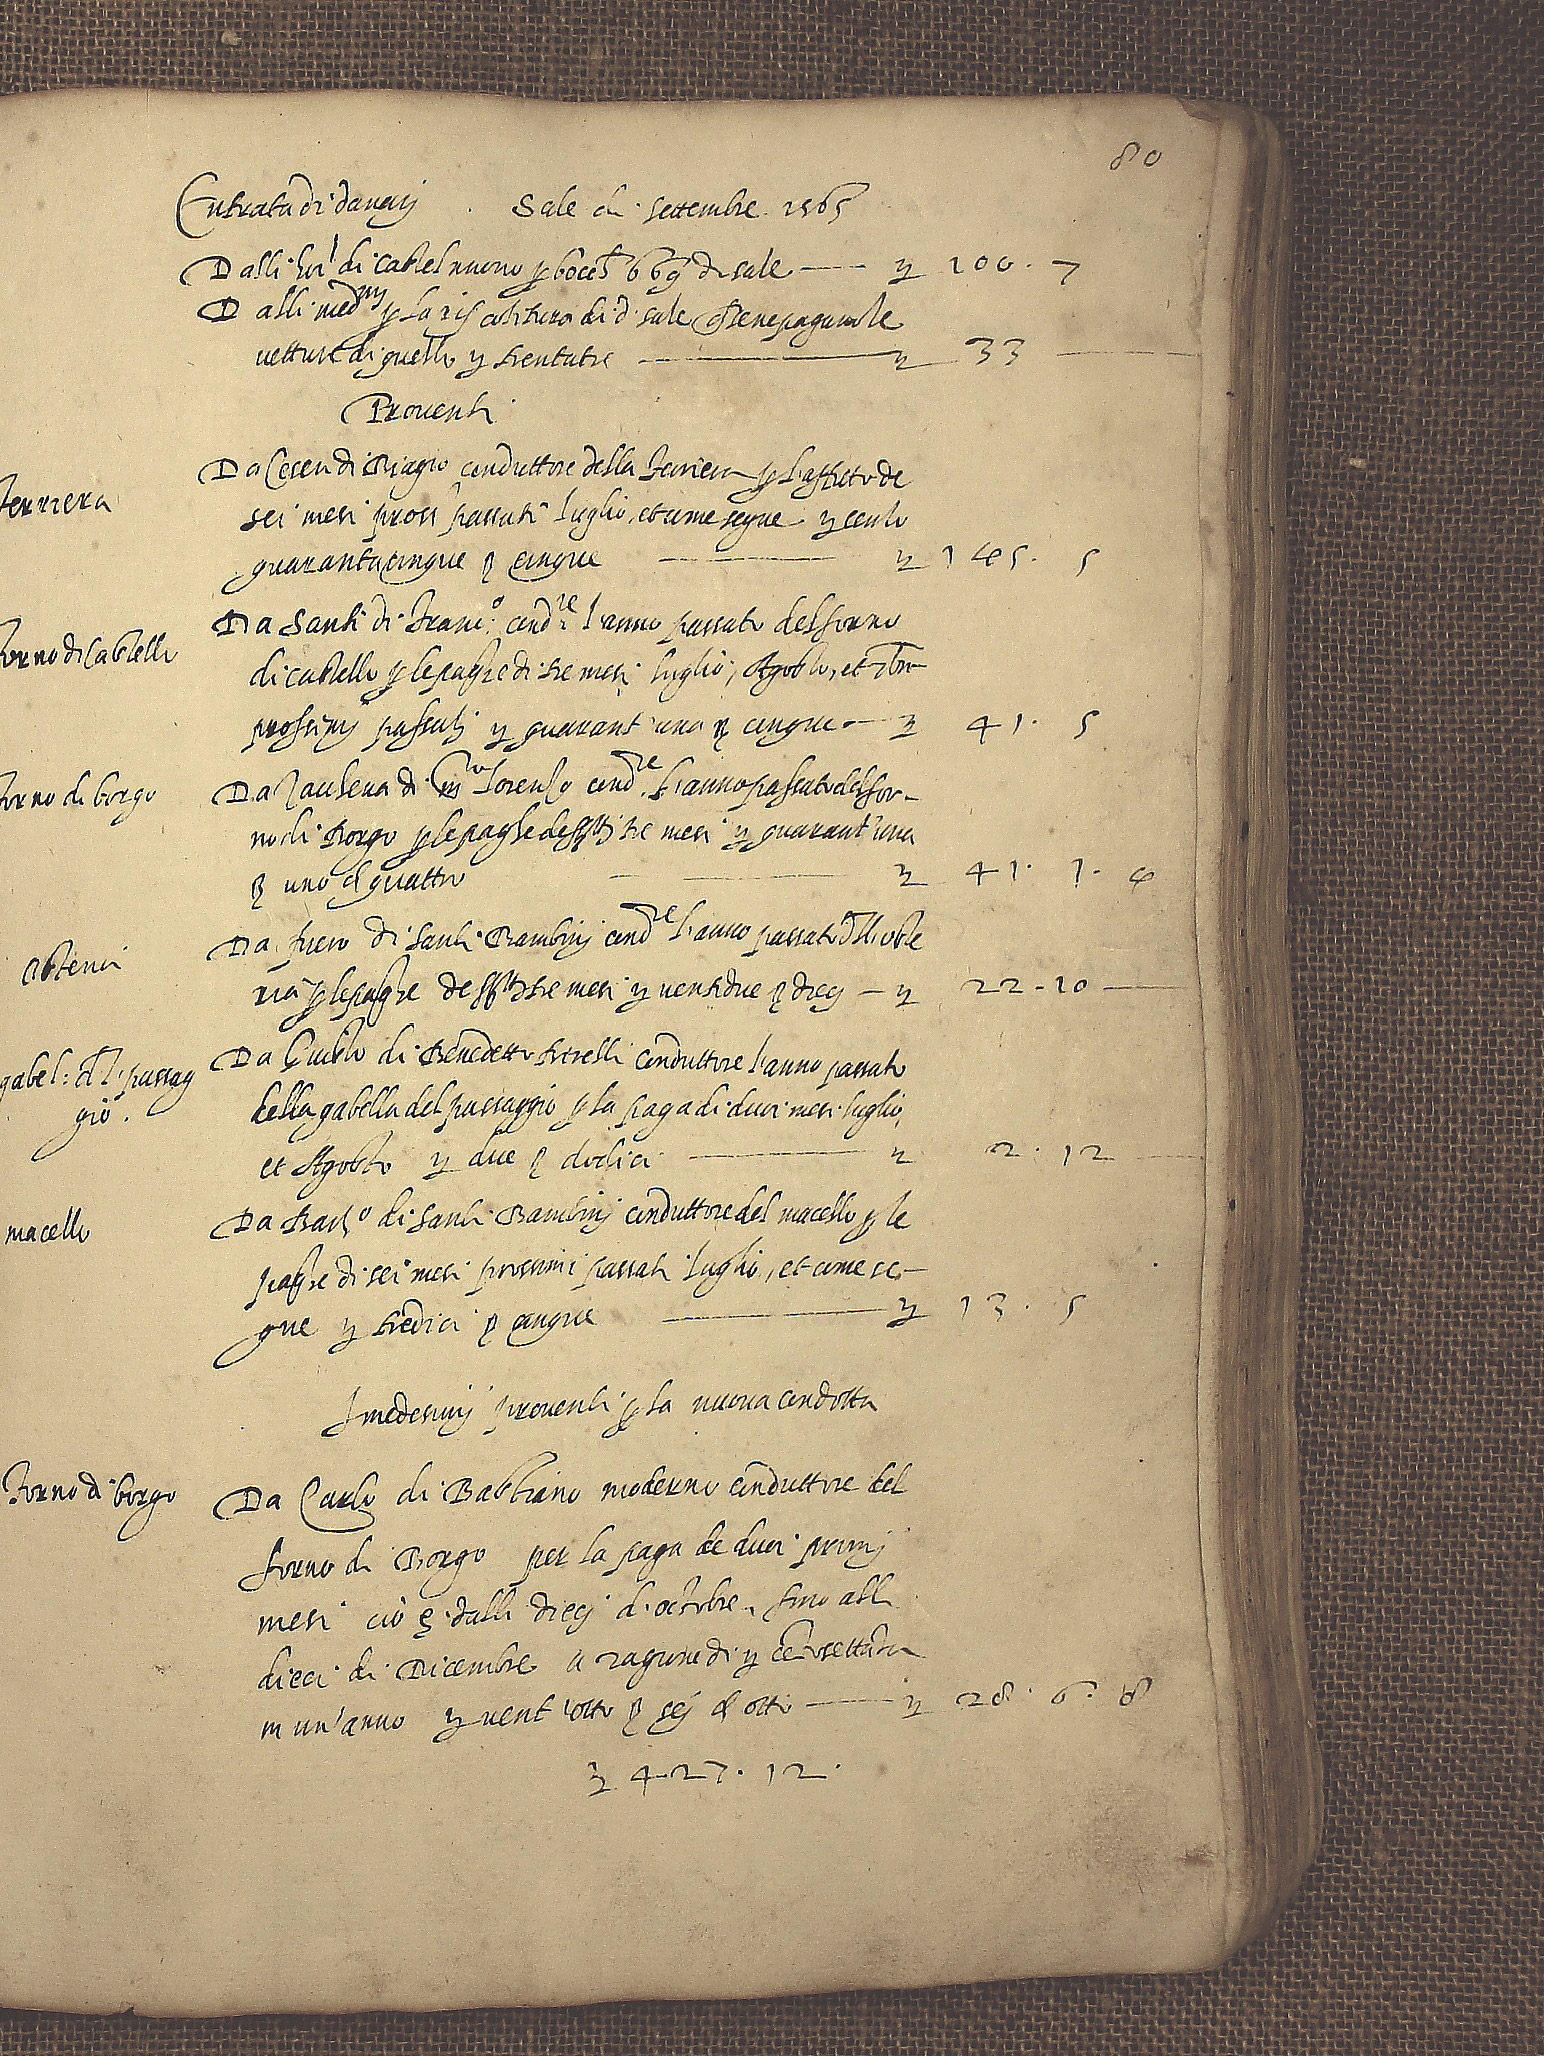 80
Entrata di danarij . Sale di settembre 1565
Dalli di castelnuovo p 669 di sale — 100. 7
Dalli p la di d. sale
vetture di quello trentatre — 33 —
Proventi
ferriera
Da Cesen di Biagio conduttore della ferriera p l'affitto de
sei mesi pross passati luglio, et come segue cento
quarantacinque cinque — 145. 5
forno di Castello
Da Santi di Franc.o cond.re l'anno passato del forno
di castello p le paghe di tre mesi luglio, Agosto, et 7bre
prossimj passatj quarant'una cinque — 41. 5
forno di borgo
Da di Lorenzo cond.re l'anno passato del for-
no di Borgo p le paghe tre mesi quarant'una
uno quattro — 41. 1. 4
osteria
Da piero di Santi Bambinj cond.re l'anno passato dell'oste
ria p le paghe tre mesi ventidue diecj — 22 - 10 —
gabel: del passag
gio.
Da Giusto di Benedetto conduttore l'anno passato
della gabella del passaggio p la paga di duoi mesi luglio,
et Agosto due dodici — 2. 12 —
macello
Da Bart.o di Santi Bambinj conduttore del macello p le
paghe di sei mesi prossimi passati luglio, et come se-
gue tredici cinque — 13. 5
I medesimj proventi p la nuova condotta
Forno di borgo
Da Carlo di Babbiano moderno conduttore del
forno di Borgo per la paga de duoi primj
mesi ciò è dalli diecj d'octobre, fino alli
dieci di Dicembre a ragione di centosettanta
in un'anno vent'otto sej otto — 28. 6. 8
427. 12.